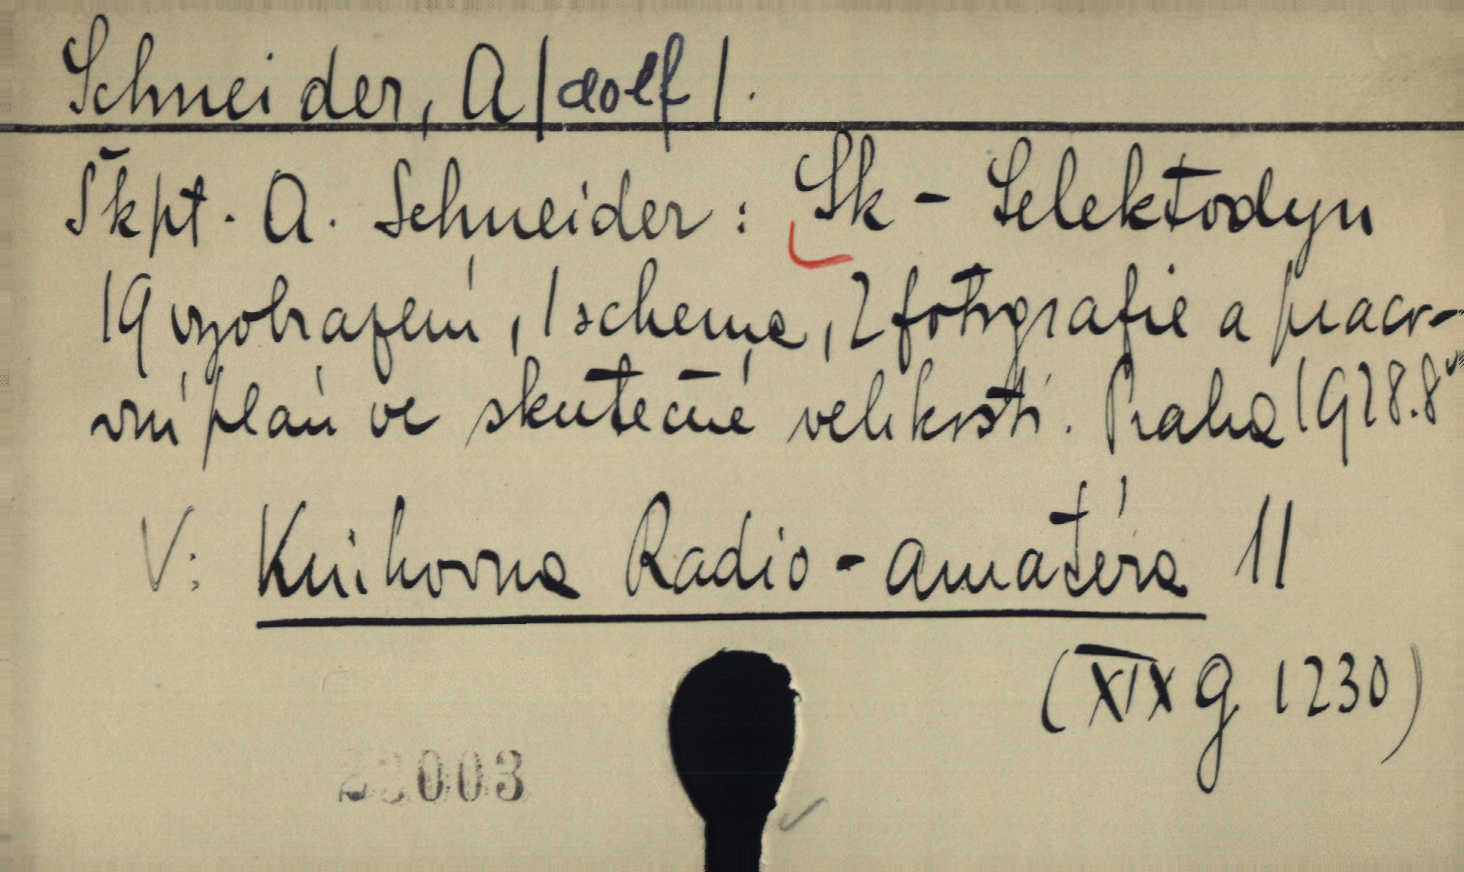 Schneider, A/dolf/.
Škpt. A. Schneider: Sk - Selektodyn
19 vyobrazení, 1 schema, 2 fotografie a pracov-
vní plán ve skutečné velikosti. Praha 1928. 8°
V: Knihovna Radio-amatéra 11
(XIX g 1230)
003